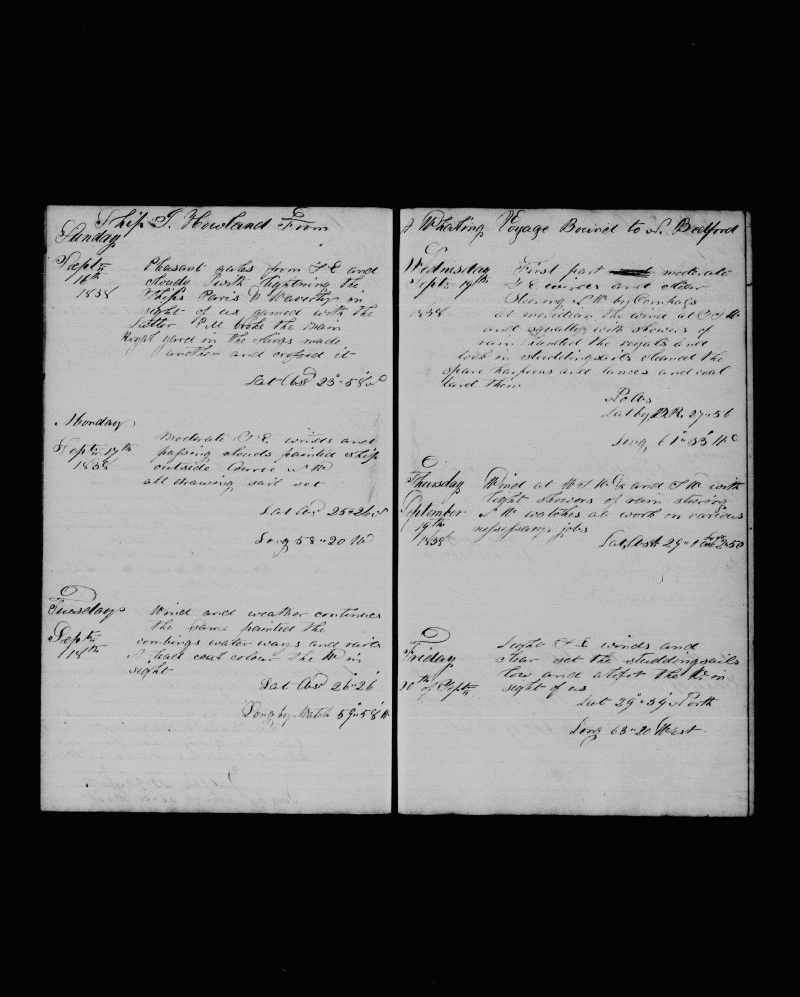 Ship G. Howland From
Sunday
Sept 16th 1838
Pleasant gales from S E and
cloudy with lightning the
Ships Paris & Waverly in
sight of us gamed with the
latter P.M. broke the main
Royal yard in the slings made
another and crossed it
Lat Obsd 23" 58 N
Monday
Septn 17th 1838
Moderate S E winds and
passing clouds painted ship
outside Course N Wd
all drawing sail set
Lat Obsd 25" 26 N
Long 58" 20 Wd
Tuesday
Septn 18th
Wind and weather continues
the same painted the
combings water ways and rails
coat colour the W in
sight
Lat Obsd 26" 26
Long by Watch 59" 58 W
A Whaling Voyage Bound to N. Bedford
Wednesday
Septn 19th 1838
First part moderate
S E winds and clear
Stering N W by Compass
at meridian the wind at
and squally with showers of
rain handed the royals and
took in studdingsails cleaned the
spare harpoons and lances and coal
tard them
Poles
Lat by D.R. 27" 56
Long 61" 33 Wd
Thursday
September 19th 1838
Wind at and S W with
light showers of rain stering
N W watches at work on various
nessessary jobs
Lat Obsd 29"
Friday
20th of Septn
Light S E winds and
clear set the studdingsails
low and aloft the W in
sight of us
Lat 29" 39 North
Long 63" 20 West